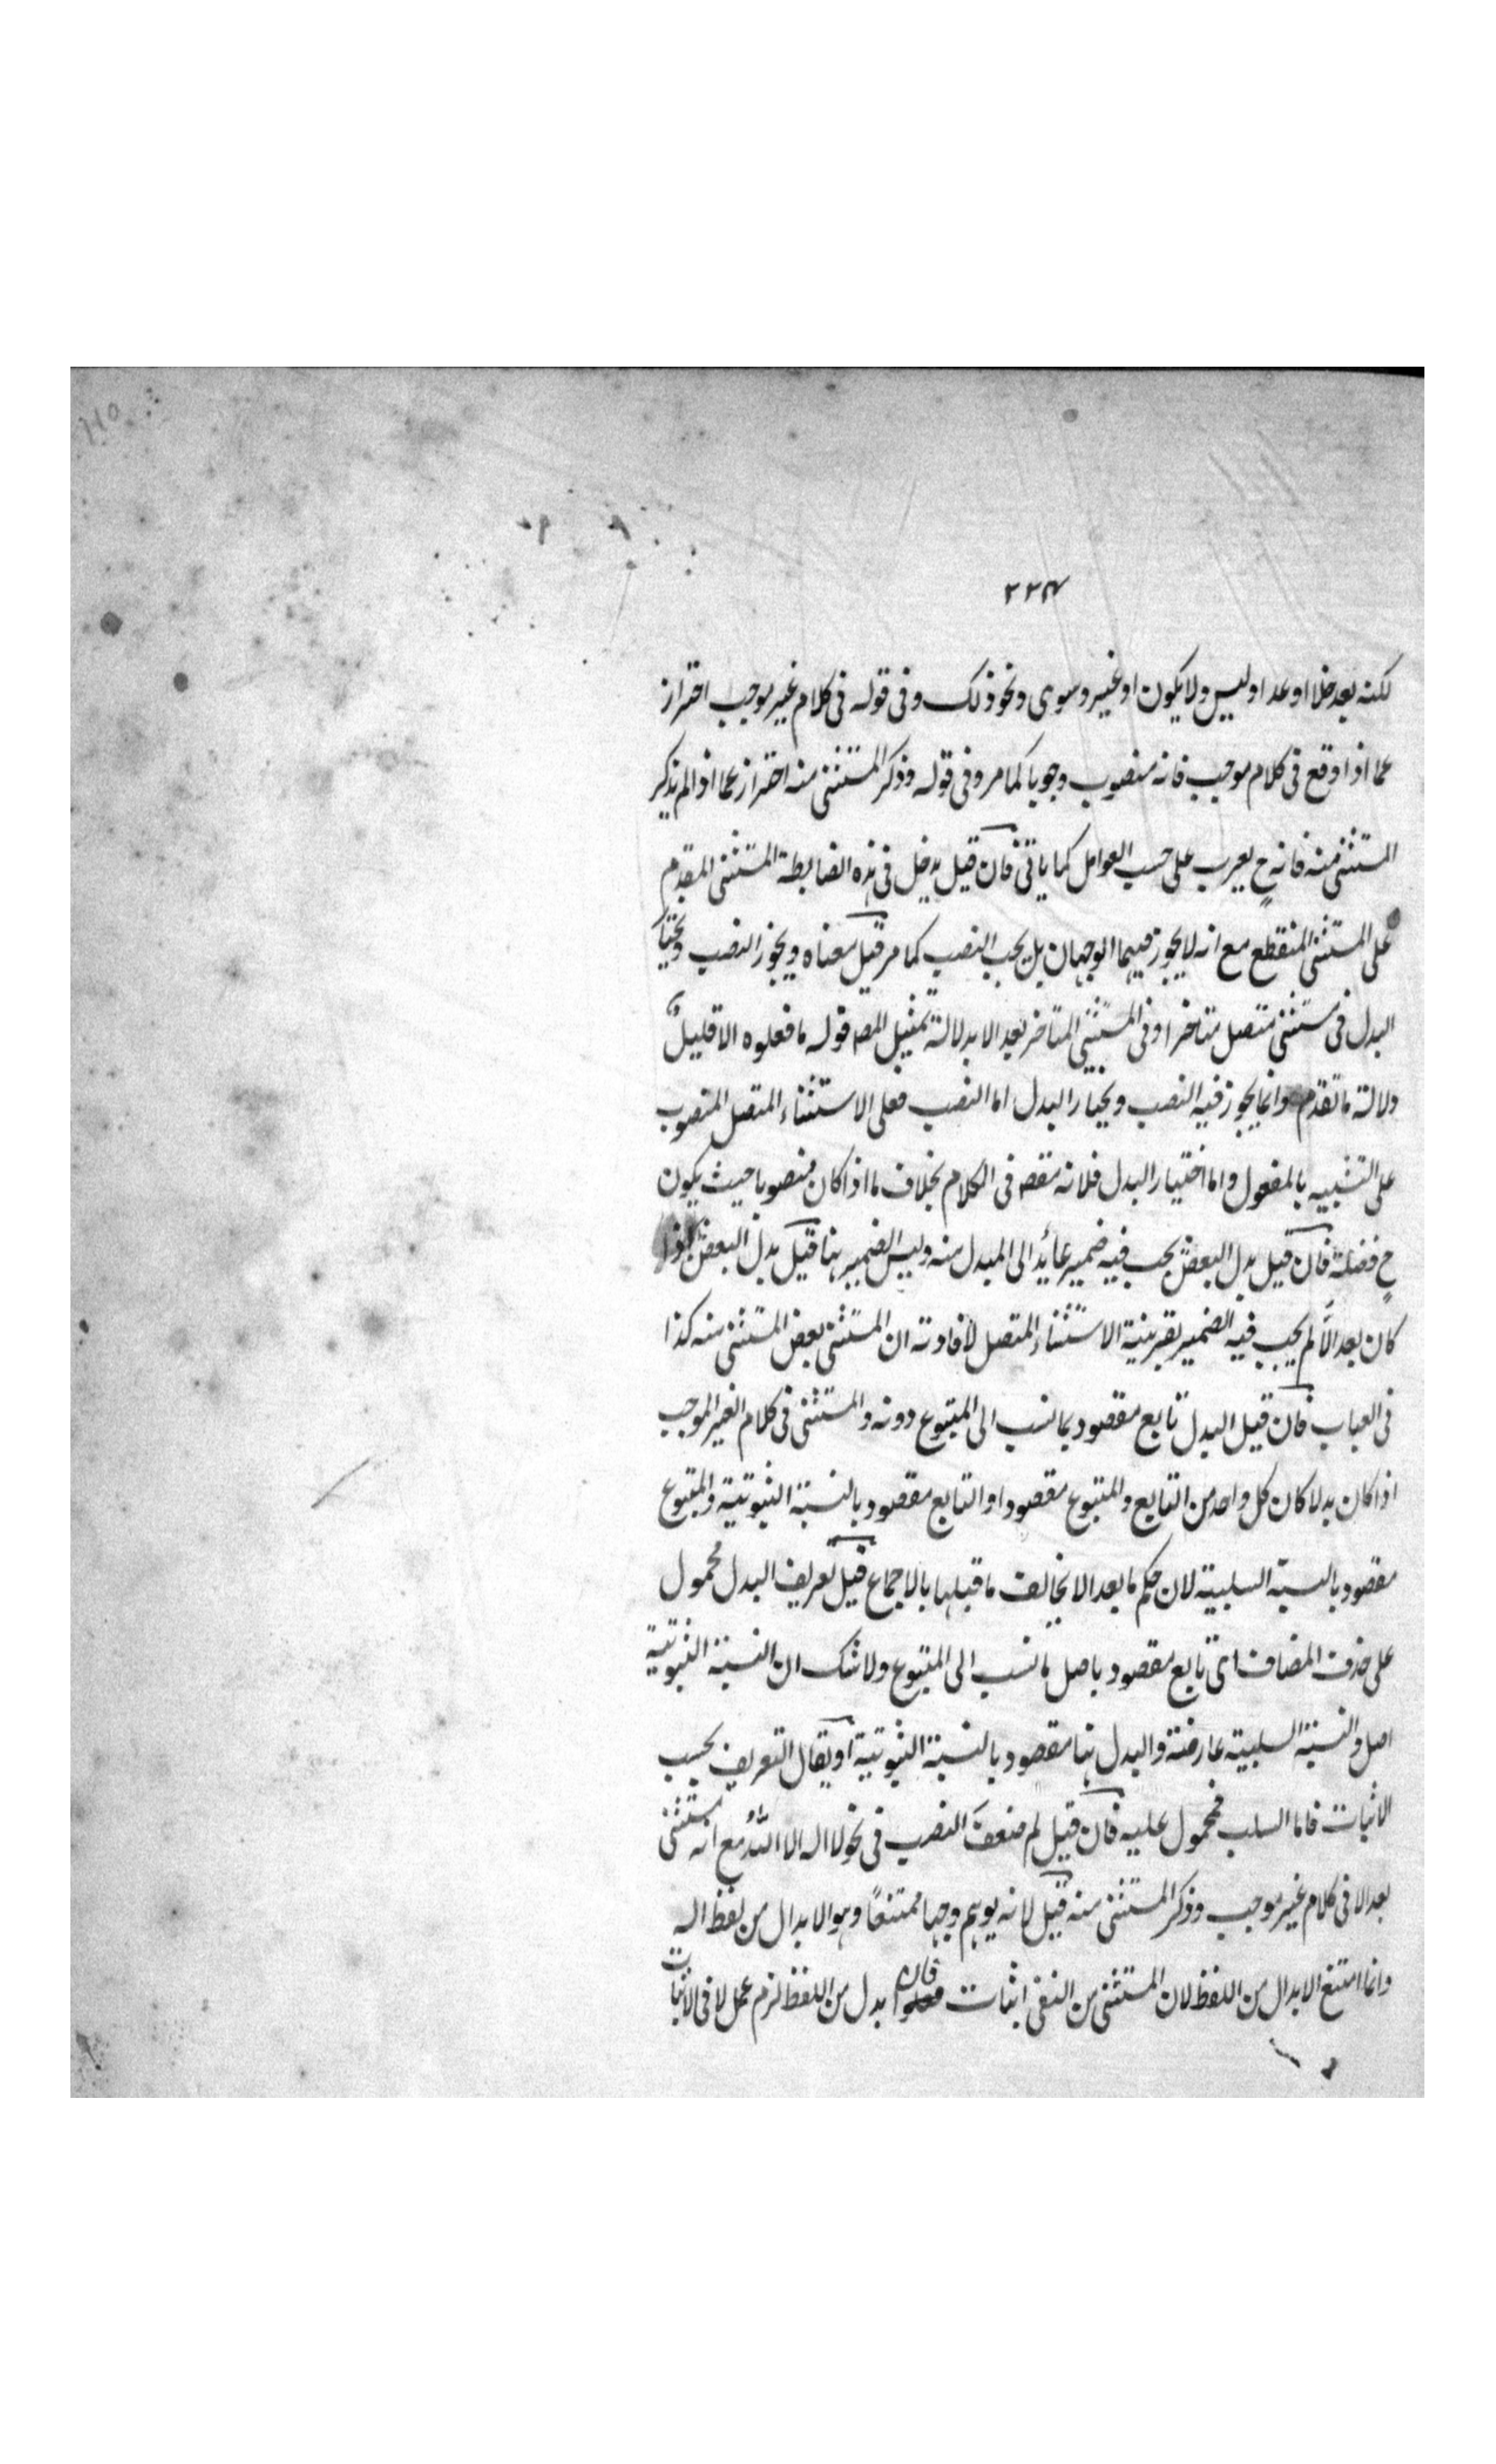 ٢٢٤
لكنه بعد خلا او عدا وليس ولا يكون او غير وسوى ونحو ذلك وفى قوله فى كلام غير موجب احتراز
عما اذا وقع فى كلام موجب فانه منصوب وجوبا كما مر وفى قوله وذكر المستثنى منه احتراز عما اذا لم يذكر
المستثنى منه فانه ح يعرب على حسب العوامل كما ياتى فان قيل يدخل فى هذه الضابطة المستثنى المقدم
على المستثنى المنقطع مع انه لا يجوز فيهما الوجهان بل يجب النصب كما مر قيل معناه ويجوز النصب ويختار
البدل فى مستثنى متصل متاخر او فى المستثنى المتاخر بعد الا بدلالة تمثيل المصـ قوله ما فعلوه الا قليلٌ
دلالة ما تقدم وانما يجوز فيه النصب ويختار البدل اما النصب فعلى الاستثناء المتصل المنصوب
على التشبيه بالمفعول واما اختيار البدل فلانه مقصـ فى الكلام بخلاف ما اذا كان منصوبا حيث يكون
ح فضلة فان قيل بدل البعض يجب فيه ضمير عائد الى المبدل منه وليس الضمير هنا قيل بدل البعض اذا
كان بعد الَّا لم يجب فيه الضمير بقرينة الاستثناء المتصل لافادته ان المستثنى بعض المستثنى منه كذا
فى العباب فان قيل البدل تابع مقصود بما نسب الى المتبوع دونه والمستثنى فى كلام الغير الموجب
اذا كان بدلا كان كل واحد من التابع والمتبوع مقصودا او التابع مقصود بالنسبة الثبوتية والمتبوع
مقصود بالنسبة السلبية لان حكم ما بعد الا يخالف ما قبلها بالاجماع قيل تعريف البدل محمول
على حذف المضاف اى تابع مقصود باصل ما نسب الى المتبوع ولا شك ان النسبة الثبوتية
اصل والنسبة السلبية عارضة والبدل هنا مقصود بالنسبة الثبوتية او يقال التعريف بحسب
الاثبات فاما السلب فمحمول عليه فان قيل لم ضعفَ النصب فى نحو لا اله الا اللّٰهُ مع انه مستثنى
بعد الا فى كلام غير موجب وذكر المستثنى منه قيل لانه يوهم وجها ممتنعًا وهو الابدال من لفظ اله
وانما امتنع الابدال من اللفظ لان المستثنى من النفى اثبات فان بدل من اللفظ لزم عمل لا فى الاثبات